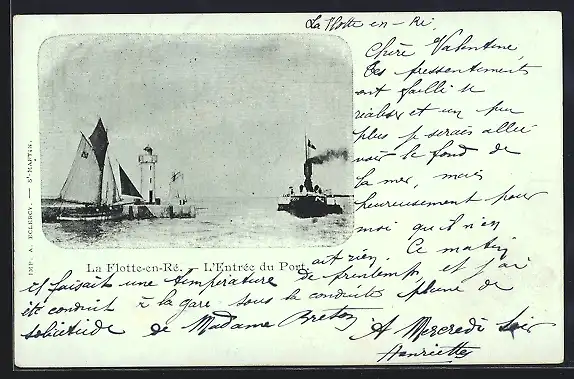 La Flotte en-Ré
Chère Valentine,
tes pressentiments
ont failli se
réaliser et un peu
plus je serais allée
voir le fond de
la mer, mais
heureusement pour
moi qu'il n'en
ait rien. Ce matin
il faisait une température de printemps, et j'ai
été conduit à la gare sous la conduite pleine de
solicitude de Madame Breton
A Mercredi soir
Henriette
La Flotte-en-Ré. — L'Entrée du Port
IMP. A. ECLERCY. — St-MARTIN.